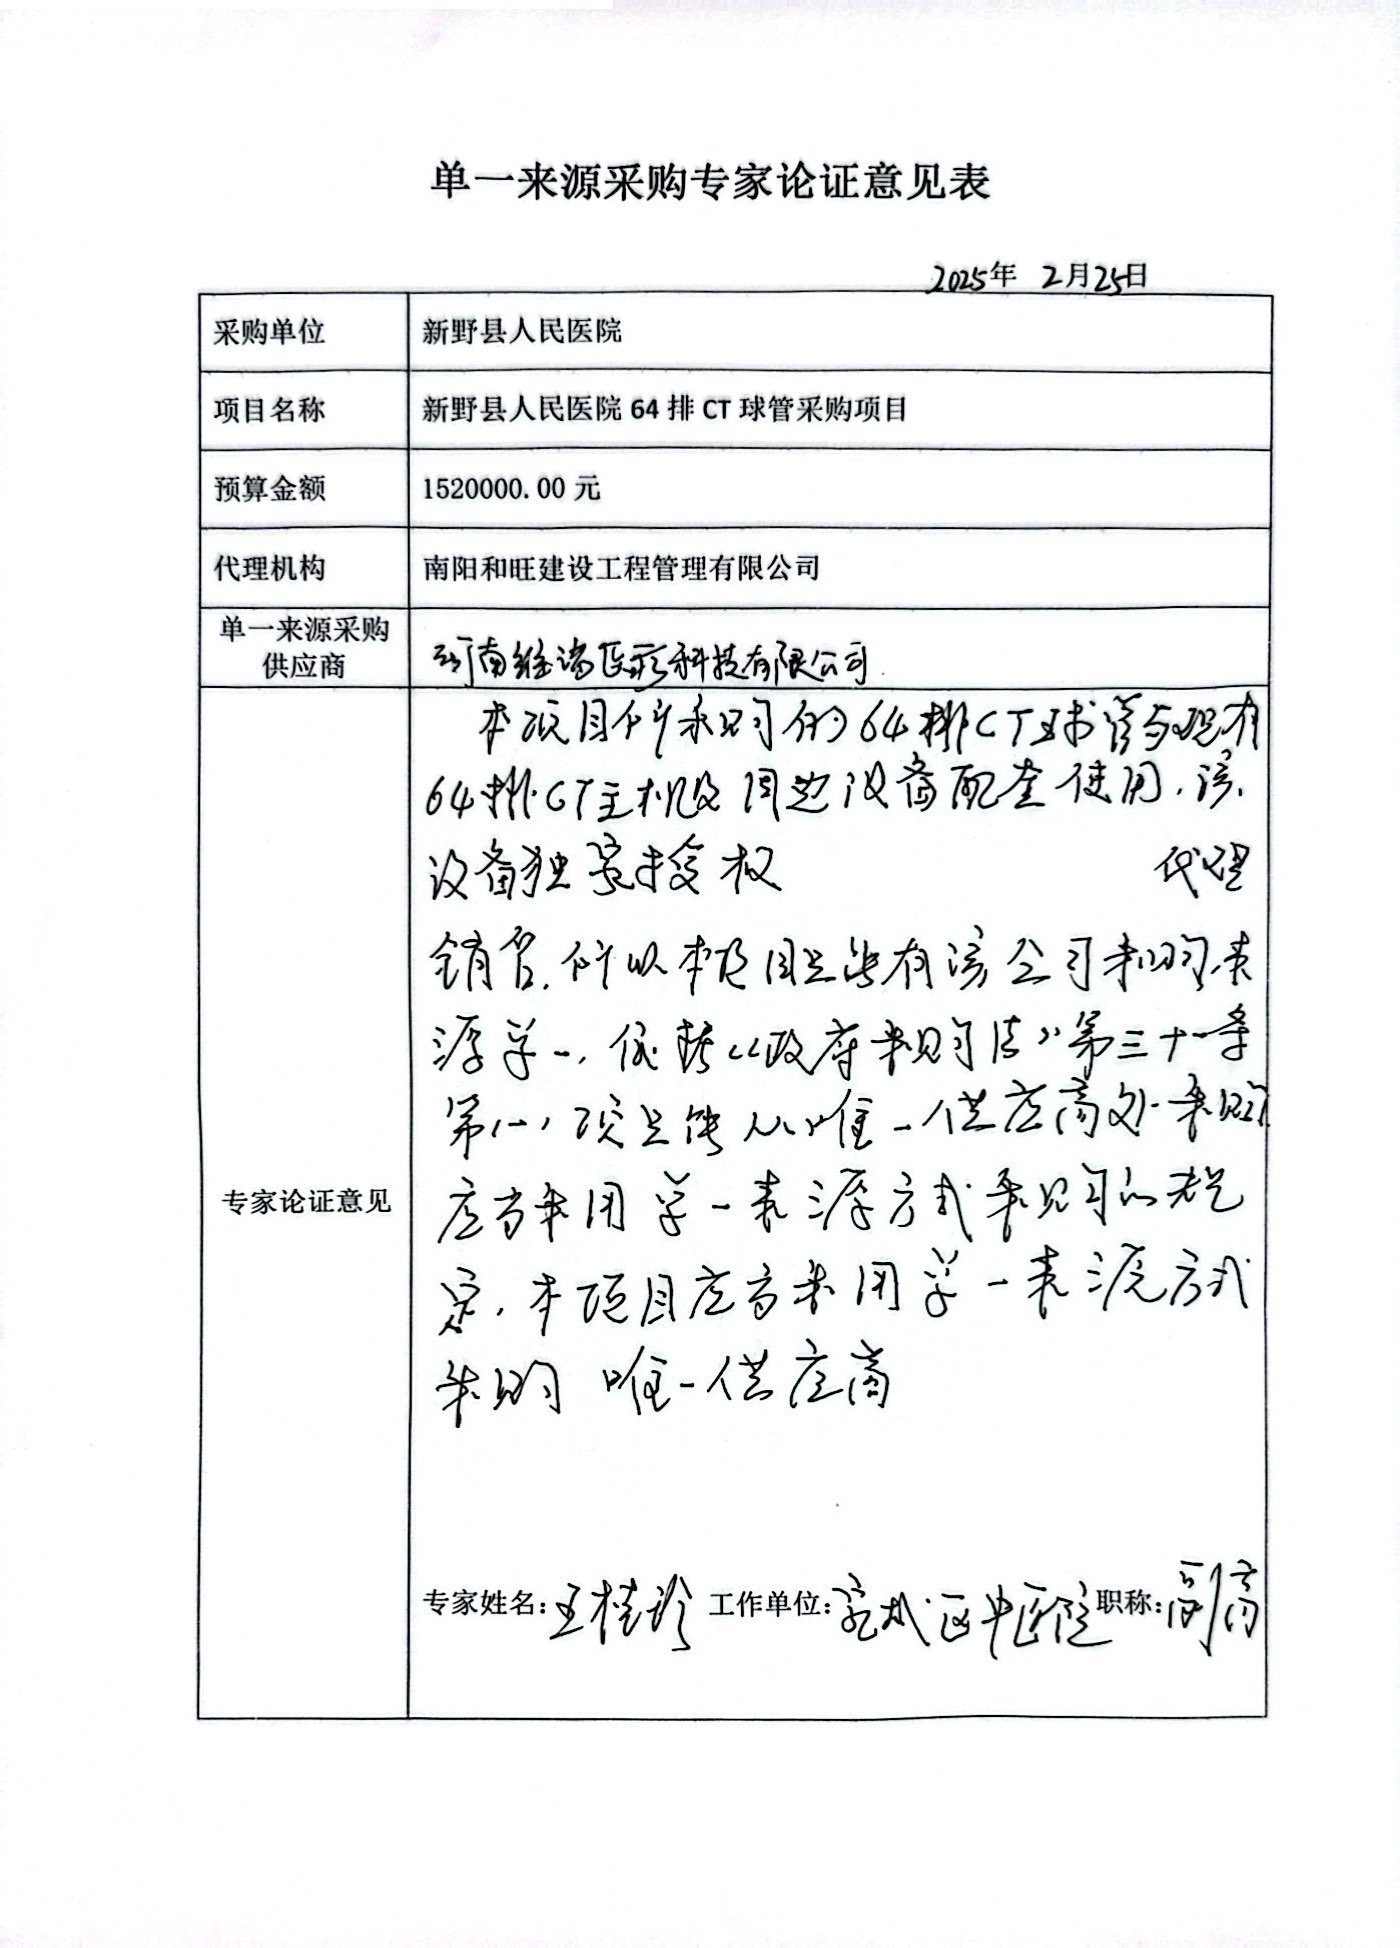 单一来源采购专家论证意见表
2025年 2月25日
采购单位 新野县人民医院
项目名称 新野县人民医院 64 排 CT 球管采购项目
预算金额 1520000.00 元
代理机构 南阳和旺建设工程管理有限公司
单一来源采购
供应商
河南维瑞医疗科技有限公司
专家论证意见
本项目所采购的64排CT球管与现有
64排CT主机及周边设备配套使用，该
设备独家授权 代理
销售，所以本项目只能有该公司采购，来
源单一，依据《政府采购法》第三十一条
第(一)项只能从唯一供应商处采购
应当采用单一来源方式采购的规
定，本项目应当采用单一来源方式
采购 唯一供应商
专家姓名：王桂珍 工作单位：宛城区中医院 职称：副高